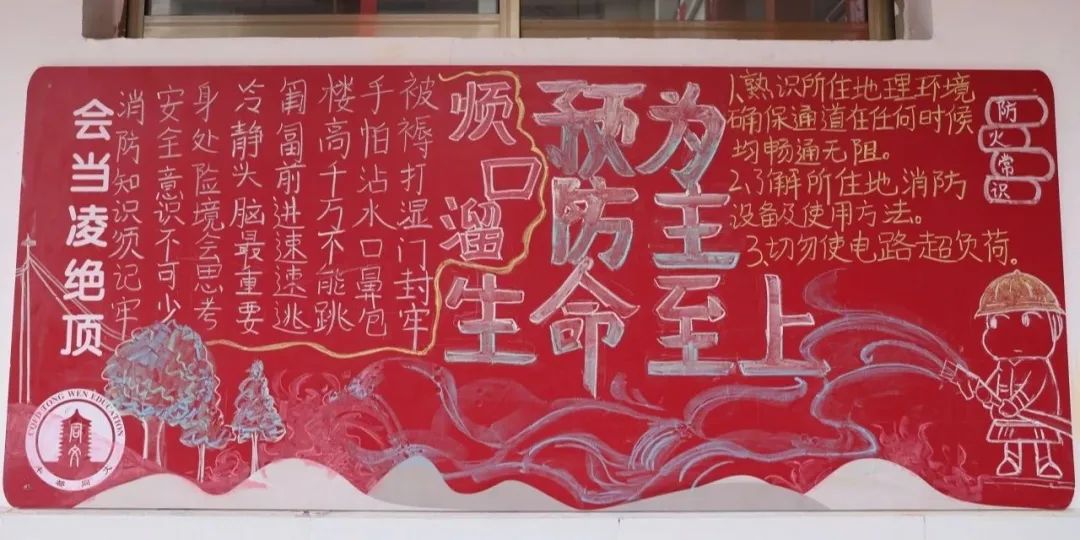 会当凌绝顶
消防知识须记牢
安全意识不可少
身处险境会思考
冷静头脑最重要
匍匐前进速速逃
楼高千万不能跳
手怕沾水口鼻包
被褥打湿门封牢
顺口溜
预防为主
生命至上
1、熟识所住地理环境
确保通道在任何时候
均畅通无阻。
2、了解所住地消防
设备及使用方法。
3、切勿使电路超负荷。
防火常识
TONG WEN EDUCATION
同文